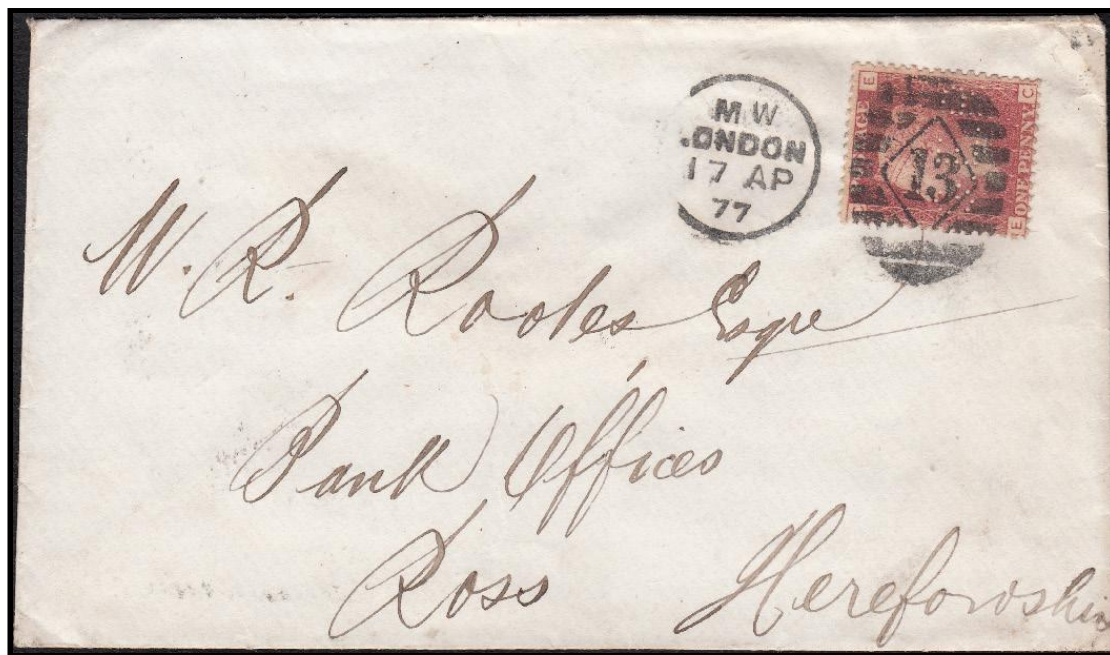 M W
LONDON
17 AP
77
E
C
ONE PENNY
E
13
W. R. Rootes Esqre
Bank Offices
Ross Herefordshire